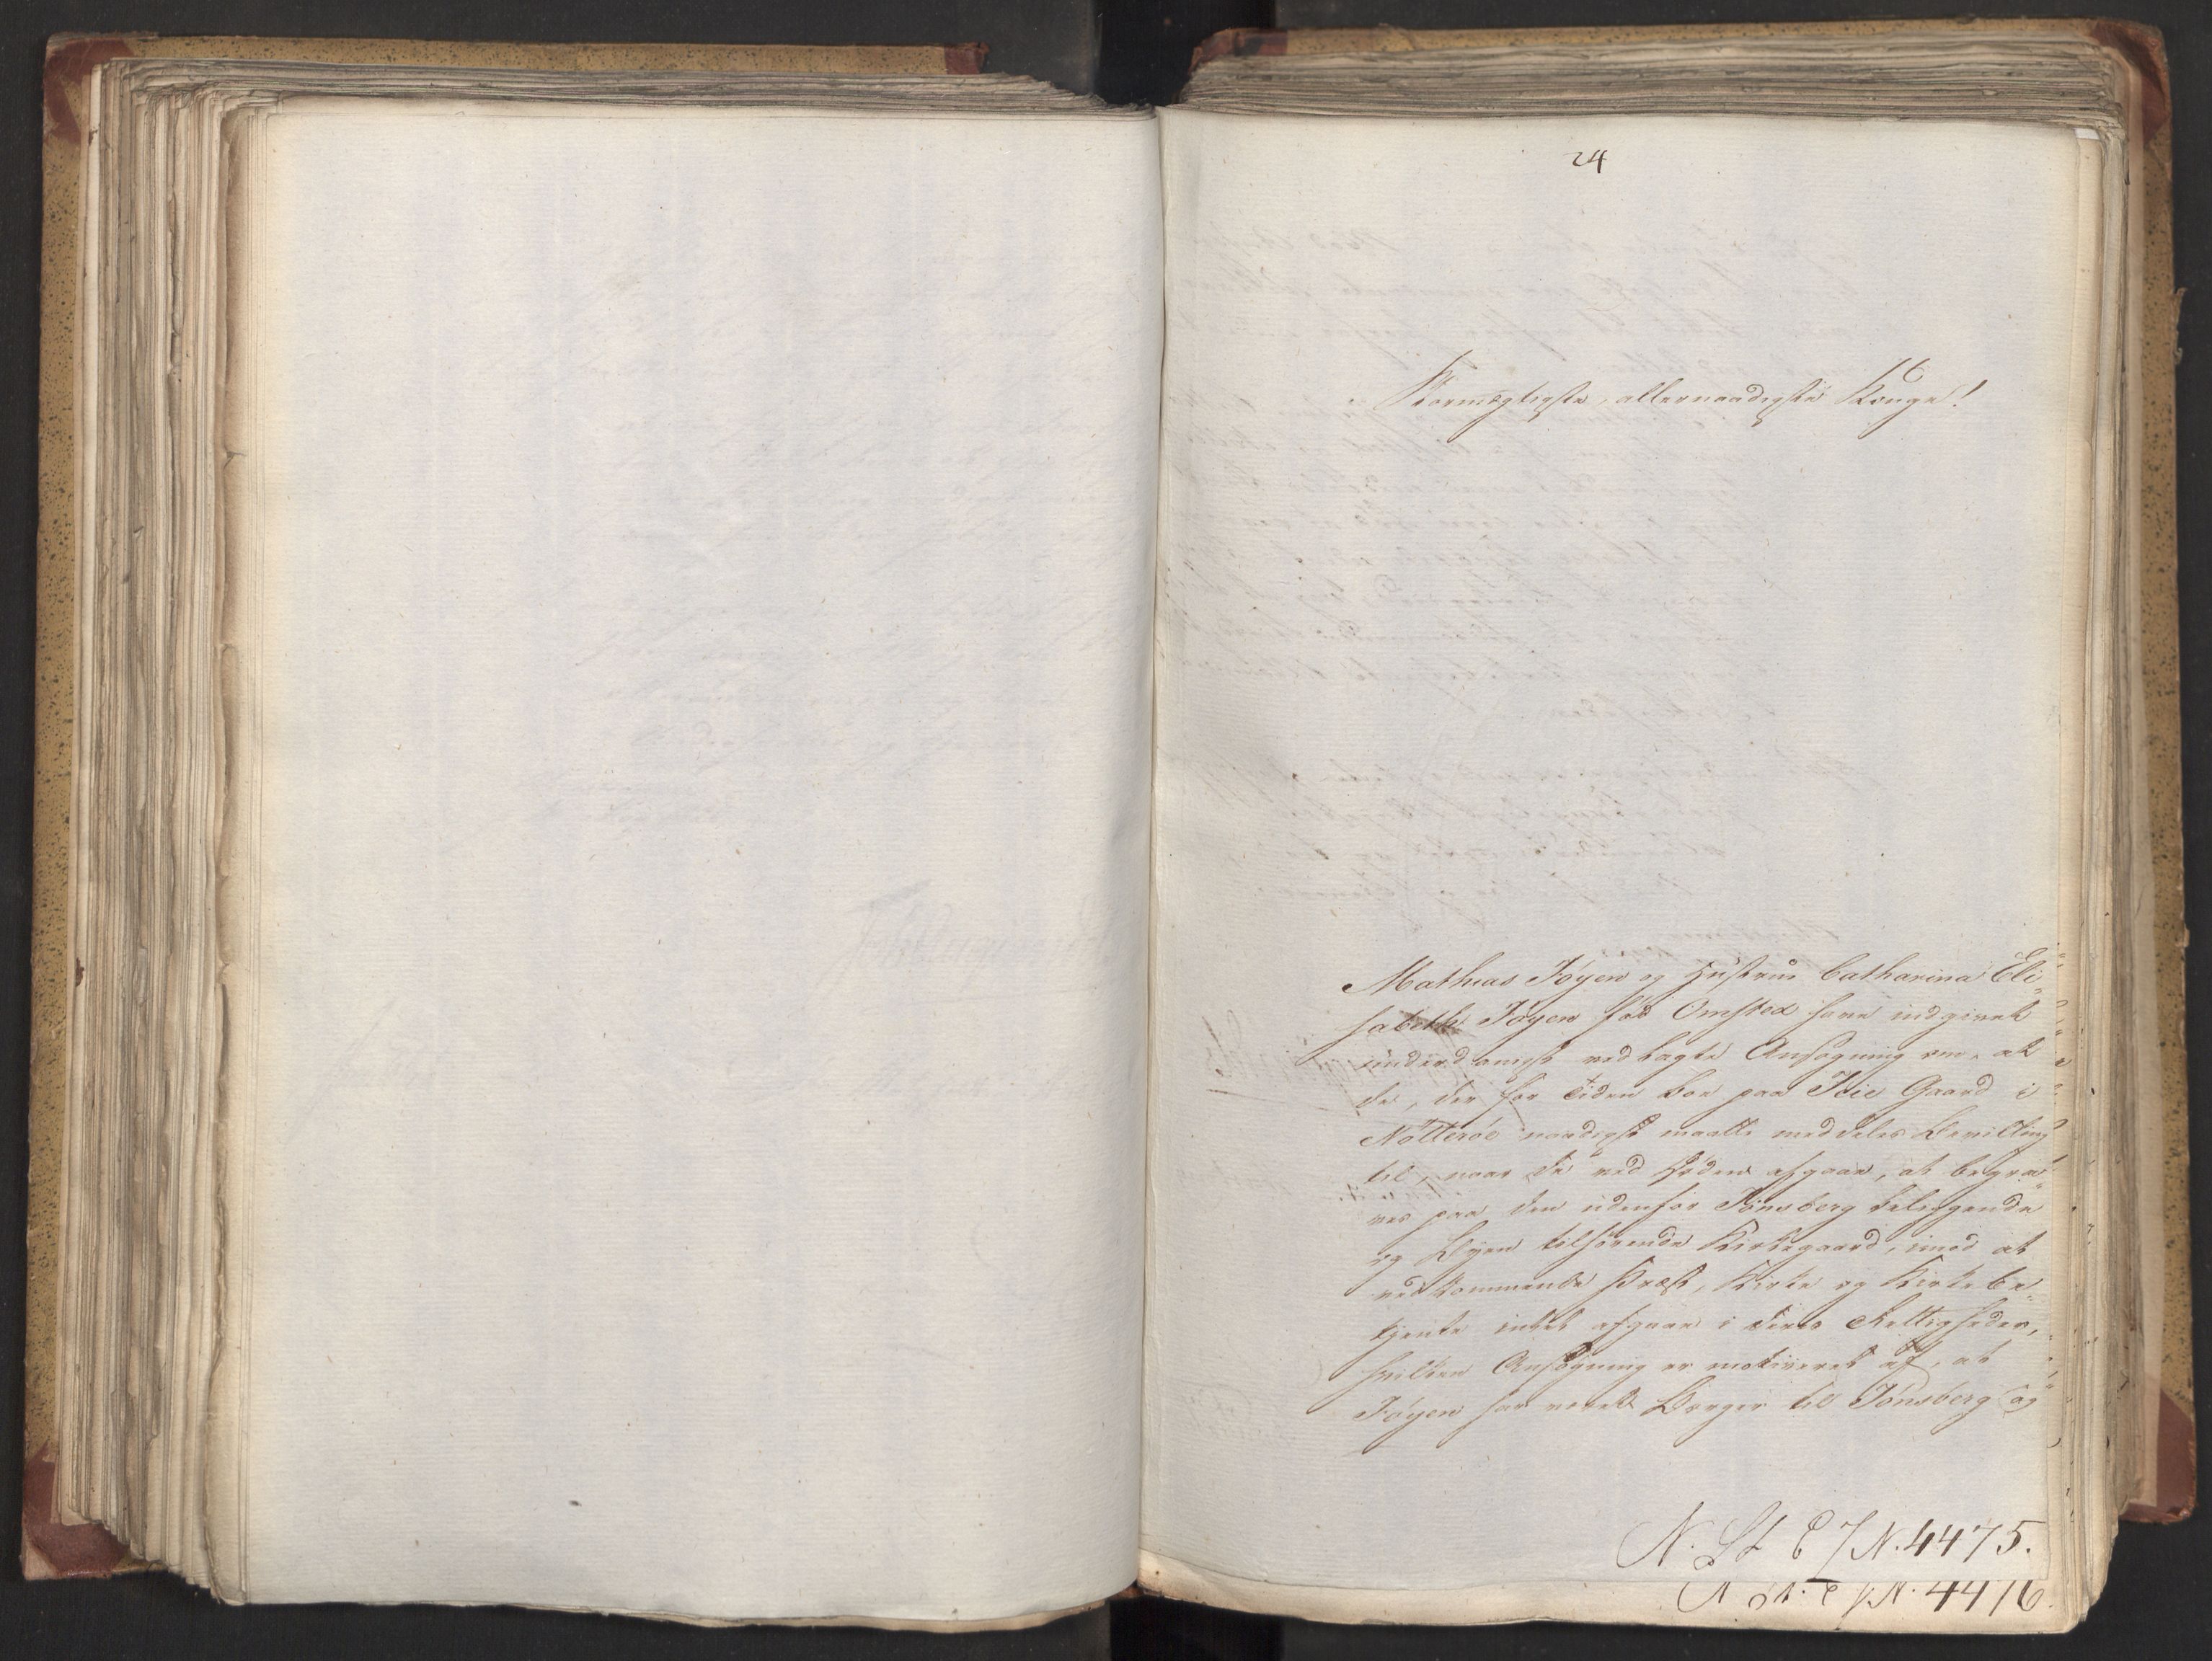 24
Stormægtigste, allernaadigste Konge!
Mathias Föyen og Hustrue Catharina Eli„
sabeth Föyen föd Omsted have indgivet
underdanigst vedlagte Ansögning om, at
de, der for Tiden boe paa Gaard i
Nötteröe naadigst maatte meddeles Bevilling
til, naar de ved Döden afgaae, at begra„
ves paa den udenfor Tönsberg beliggende
og Byen tilhörende Kirkegaard, imod at
vedkommende Præst, Kirke og Kirkebe„
tjente intet afgaaer i deres Rettigheder,
hvilken Ansögning er motiveret af, at
Föyen har været Borger til Tönsberg og
N. St. E / N. 4475.
N St. E / N. 4476.